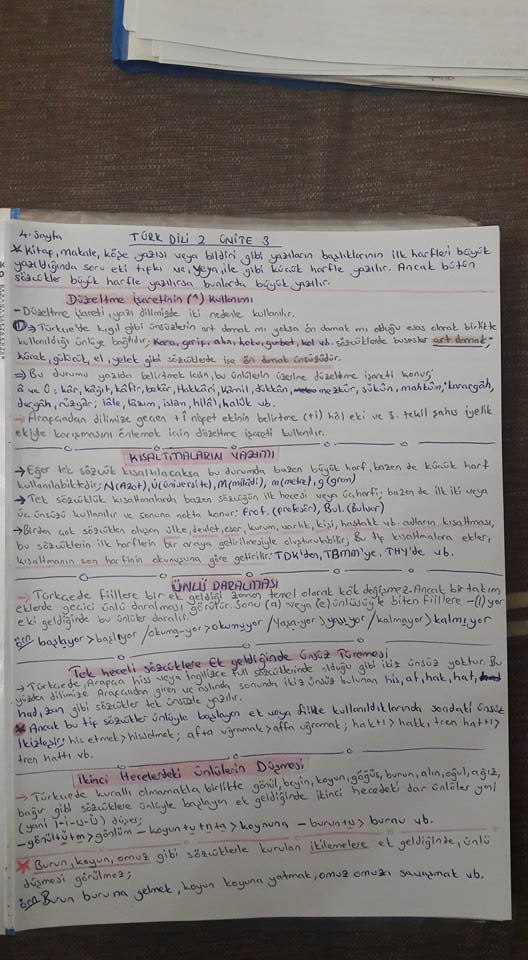 4. sayfa
TÜRK DİLİ 2 ÜNİTE 3
* Kitap, makale, köşe yazısı veya bildiri gibi yazıların başlıklarının ilk harfleri büyük
yazıldığında soru eki tıpkı ve, veya, ile gibi küçük harfle yazılır. Ancak bütün
sözcükler büyük harfle yazılırsa bunlarda büyük yazılır.
Düzeltme işaretinin (^) Kullanımı
- Düzeltme işareti, yazı dilimizde iki nedenle kullanılır.
① Türkçe'de k,g,l gibi ünsüzlerin art damak mı yoksa ön damak mı olduğu esas olarak birlikte
kullanıldığı ünlüye bağlıdır; Kara, garip, alan, kotu, gurbet, kol vb. sözcüklerde bu sesler art damak;
kürek, gökçül, el, yelek gibi sözcüklerde ise ön damak ünsüzüdür.
→ Bu durumu yazıda belirtmek için, bu ünlülerin üzerine düzeltme işareti konur;
â ve û; kâr, kâğıt, kâfir, bekâr, Hakkâri, kâmil, dükkân, mezkûr, sükûn, mahkûm, karargâh,
dergâh, rüzgâr; lâle, lâzım, islâm, hilâl, halûk vb.
→ Arapçadan dilimize geçen +î nispet ekinin belirtme (+i) hâl eki ve 3. tekil şahıs iyelik
ekiyle karışmasını önlemek için düzeltme işareti kullanılır.
KISALTMALARIN YAZIMI
→ Eğer tek sözcük kısaltılacaksa bu durumda bazen büyük harf, bazen de küçük harf
kullanılabilmektedir; N(Azot), Ü(üniversite), M(milâdi), m(metre), g(gram)
→ Tek sözcüklük kısaltmalarda bazen sözcüğün ilk hecesi veya üç harfi; bazen de ilk iki veya
üç ünsüzü kullanılır ve sonuna nokta konur; Prof. (profesör), Bul. (Bulvar)
→ Birden çok sözcükten oluşan ülke, devlet, eser, kurum, varlık, kişi, hastalık vb. adların kısaltması,
bu sözcüklerin ilk harflerin bir araya getirilmesiyle oluşturulabilir; Bu tip kısaltmalara ekler,
kısaltmanın son harfinin okunuşuna göre getirilir: TDK'den, TBMM'ye, THY'de vb.
ÜNLÜ DARALMASI
→ Türkçede fiillere bir ek geldiği zaman temel olarak kök değişmez. Ancak bir takım
eklerde geçici ünlü daralması görülür. Sonu (a) veya (e) ünlüsüyle biten fiillere -(I)yor
eki geldiğinde bu ünlüler daralır.
örn başlayor > başlıyor / okuma-yor > okumuyor / Yaşa-yor > yaşıyor / kalmayor > kalmıyor
Tek heceli sözcüklere Ek geldiğinde Ünsüz Türemesi
→ Türkçede, Arapça hiss veya İngilizce full sözcüklerinde olduğu gibi ikiz ünsüz yoktur. Bu
yüzden dilimize Arapçadan giren ve aslında sonunda ikiz ünsüz bulunan his, af, hak, hat,
had, zan gibi sözcükler tek ünsüzle yazılır.
* Ancak bu tip sözcükler ünlüyle başlayan ek veya fiille kullanıldıklarında sondaki ünsüz
ikizleşir; his etmek > hissetmek; afta uğramak > affa uğramak; hak+ı > hakkı, tren hat+ı >
tren hattı vb.
İkinci Hecelerdeki Ünlülerin Düşmesi
→ Türkçede kurallı olmamakla birlikte gönül, beyin, koyun, göğüs, burun, alın, oğul, ağız,
bağır gibi sözcüklere ünlüyle başlayan ek geldiğinde ikinci hecedeki dar ünlüler
(yani I-i-u-Ü) düşer;
- gönül+ü+m > gönlüm - koyun+u+n+a > koynuna - burun+u > burnu vb.
* Burun, koyun, omuz gibi sözcüklerle kurulan ikilemelere ek geldiğinde, ünlü
düşmesi görülmez;
örn Burun buruna gelmek, koyun koyuna yatmak, omuz omuza savaşmak vb.